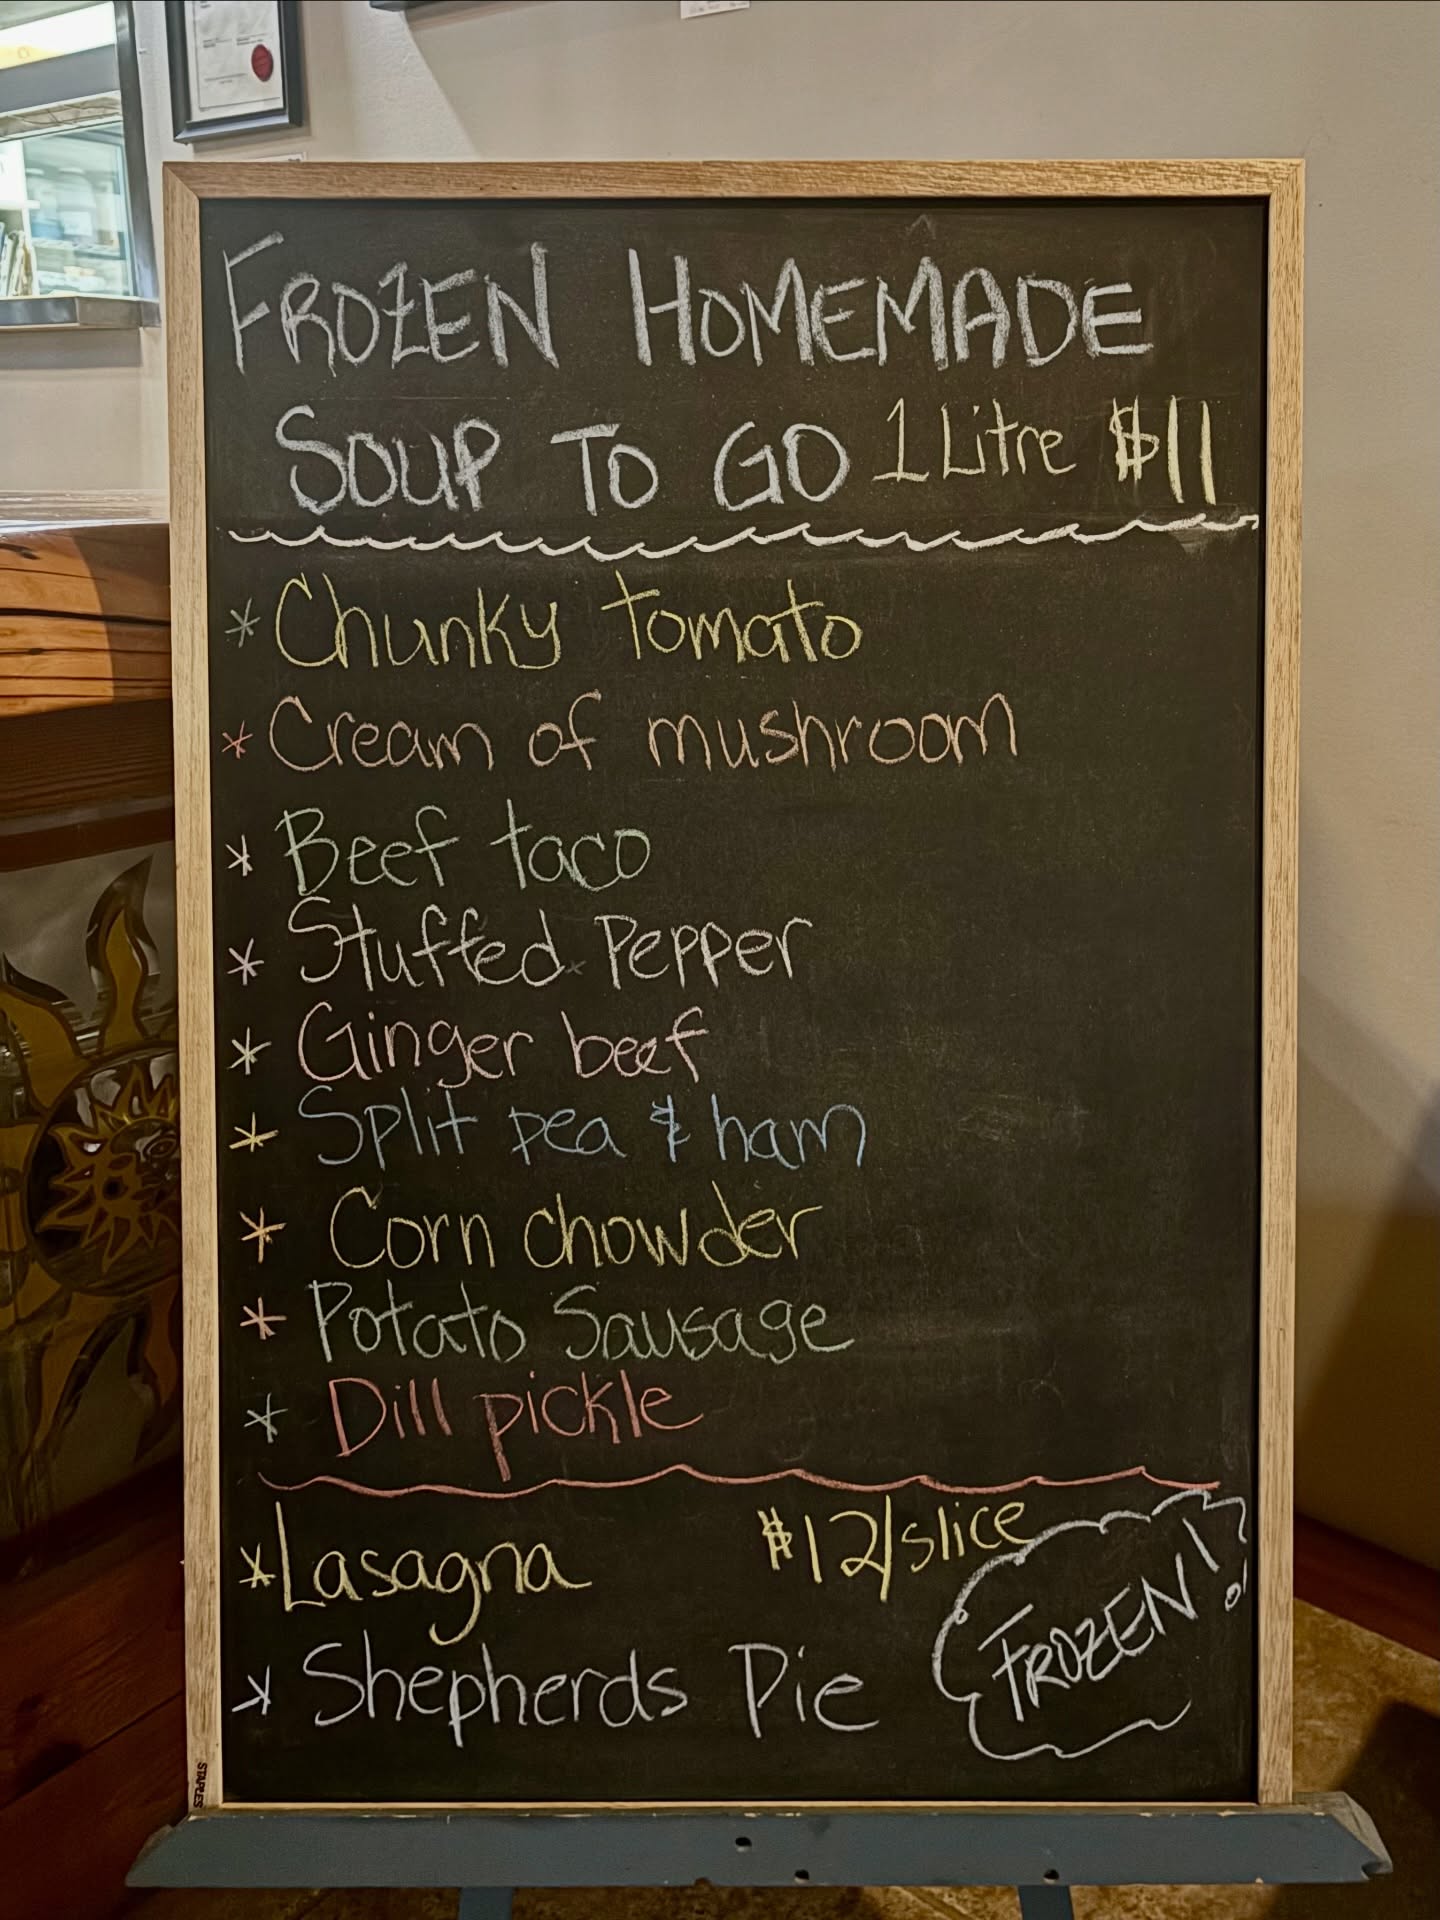 FROZEN HOMEMADE
SOUP TO GO 1 Litre $11
* Chunky tomato
* Cream of mushroom
* Beef taco
* Stuffed Pepper
* Ginger beef
* Split pea & ham
* Corn chowder
* Potato Sausage
* Dill pickle
* Lasagna $12/slice
* Shepherds Pie FROZEN!!
STAPLES